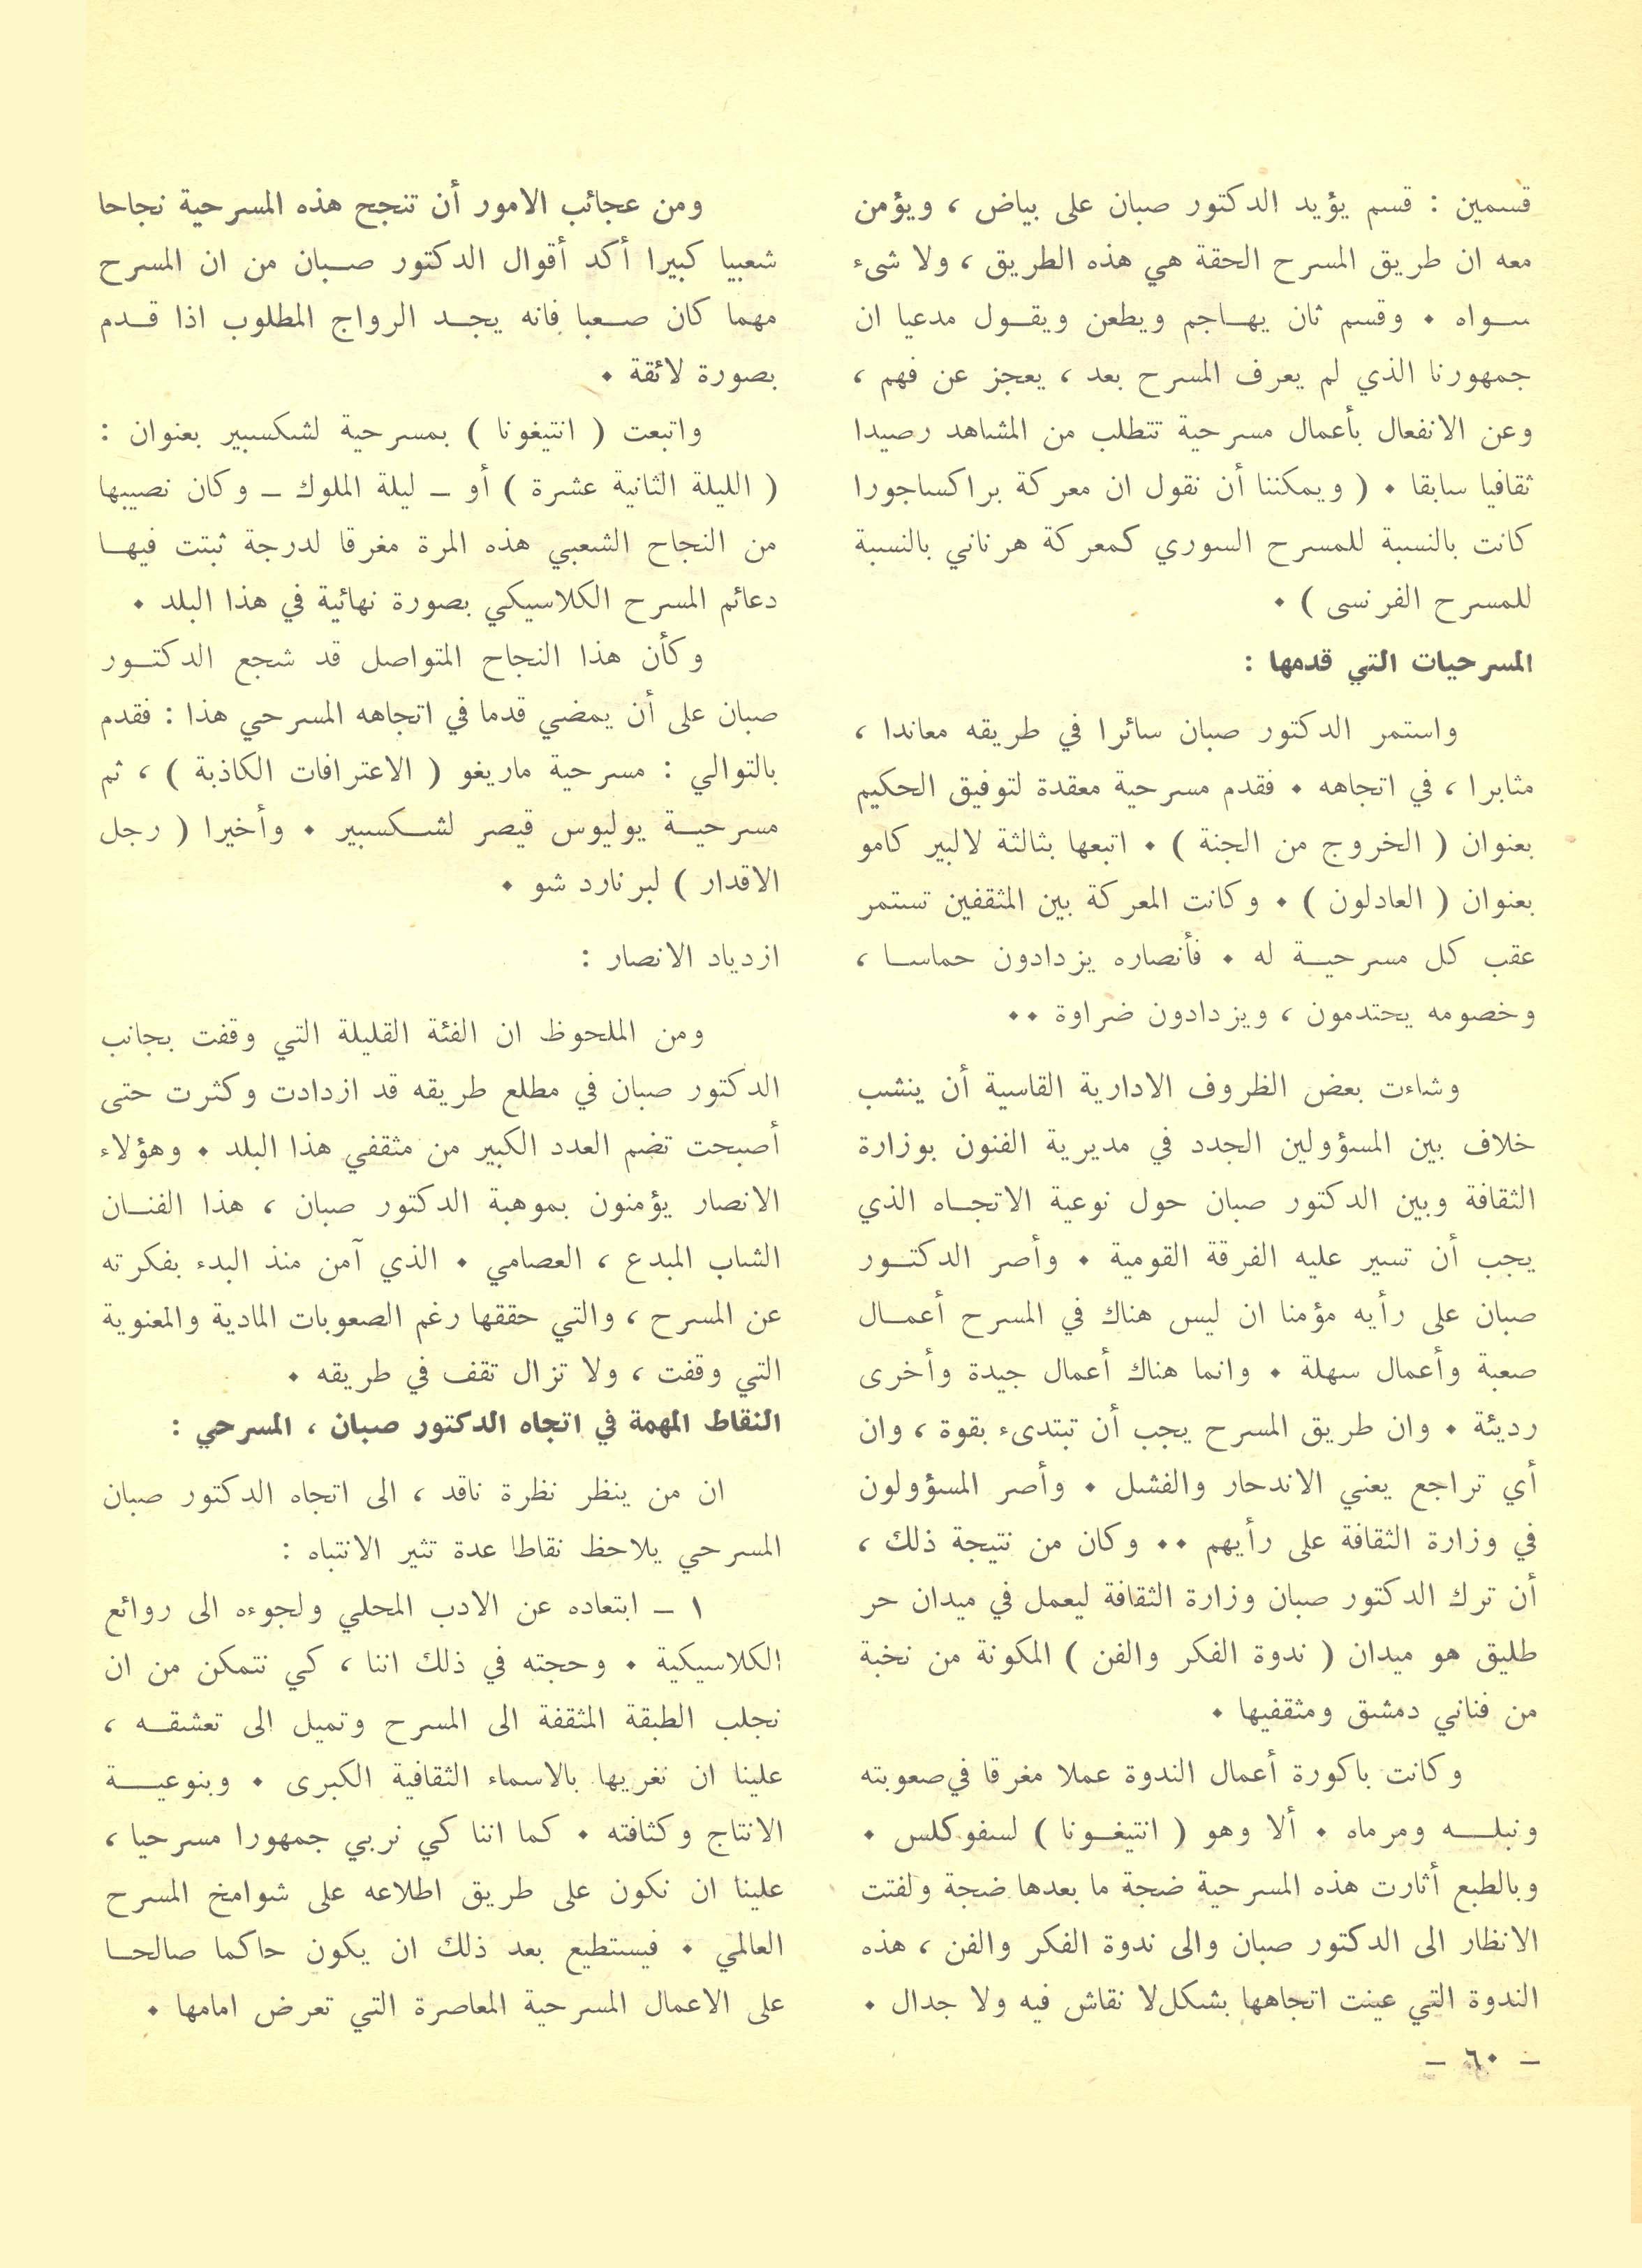 قسمين : قسم يؤيد الدكتور صبان على بياض ، ويؤمن
معه ان طريق المسرح الحقة هي هذه الطريق ، ولا شىء
سـواه ٠ وقسم ثان يهـاجم ويطعن ويقـول مدعيا ان
جمهورنا الذي لم يعرف المسرح بعد ، يعجز عن فهم ،
وعن الانفعال بأعمال مسرحية تتطلب من المشاهد رصيدا
ثقافيا سابقا ٠ ( ويمكننا أن نقول ان معركة براكساجورا
كانت بالنسبة للمسرح السوري كمعركة هرناني بالنسبة
للمسرح الفرنسى ) ٠
المسرحيات التي قدمها :
واستمر الدكتور صبان سائرا في طريقه معاندا ،
مثابرا ، في اتجاهه ٠ فقدم مسرحية معقدة لتوفيق الحكيم
بعنوان ( الخروج من الجنة ) ٠ اتبعها بثالثة لالبير كامو
بعنوان ( العادلون ) ٠ وكانت المعركة بين المثقفين تستمر
عقب كل مسرحيـة له ٠ فأنصاره يزدادون حماسـا ،
وخصومه يحتدمون ، ويزدادون ضراوة ٠٠
وشاءت بعض الظروف الادارية القاسية أن ينشب
خلاف بين المسؤولين الجدد في مديرية الفنون بوزارة
الثقافة وبين الدكتور صبان حول نوعية الاتجـاه الذي
يجب أن تسير عليه الفرقة القومية ٠ وأصر الدكتـور
صبان على رأيه مؤمنا ان ليس هناك في المسرح أعمـال
صعبة وأعمال سهلة ٠ وانما هناك أعمال جيدة وأخرى
رديئة ٠ وان طريق المسرح يجب أن تبتدىء بقوة ، وان
أي تراجع يعني الاندحار والفشل ٠ وأصر المسؤولون
في وزارة الثقافة على رأيهم ٠٠ وكان من نتيجة ذلك ،
أن ترك الدكتور صبان وزارة الثقافة ليعمل في ميدان حر
طليق هو ميدان ( ندوة الفكر والفن ) المكونة من نخبة
من فناني دمشق ومثقفيها ٠
وكانت باكورة أعمال الندوة عملا مغرقا في صعوبته
ونبلـه ومرماه ٠ ألا وهو ( انتيغـونا ) لسفوكلس ٠
وبالطبع أثارت هذه المسرحية ضجة ما بعدها ضجة ولفتت
الانظار الى الدكتور صبان والى ندوة الفكر والفن ، هذه
الندوة التي عينت اتجاهها بشكل لا نقاش فيه ولا جدال ٠
ومن عجائب الامور أن تنجح هذه المسرحية نجاحا
شعبيا كبيرا أكد أقوال الدكتور صـبان من ان المسرح
مهما كان صـعبا فانه يجـد الرواج المطلوب اذا قـدم
بصورة لائقة ٠
واتبعت ( انتيغونا ) بمسرحية لشكسبير بعنوان :
( الليلة الثانية عشرة ) أو ـ ليلة الملوك ـ وكان نصيبها
من النجاح الشعبي هذه المرة مغرقا لدرجة ثبتت فيهـا
دعائم المسرح الكلاسيكي بصورة نهائية في هذا البلد ٠
وكأن هذا النجاح المتواصل قد شجع الدكتـور
صبان على أن يمضي قدما في اتجاهه المسرحي هذا : فقدم
بالتوالي : مسرحية ماريغو ( الاعترافات الكاذبة ) ، ثم
مسرحيـة يوليوس قيصر لشـكسبير ٠ وأخيرا ( رجل
الاقدار ) لبرنارد شو ٠
ازدياد الانصار :
ومن الملحوظ ان الفئة القليلة التي وقفت بجانب
الدكتور صبان في مطلع طريقه قد ازدادت وكثرت حتى
أصبحت تضم العدد الكبير من مثقفي هذا البلد ٠ وهؤلاء
الانصار يؤمنون بموهبة الدكتور صبان ، هذا الفنـان
الشاب المبدع ، العصامي ٠ الذي آمن منذ البدء بفكرته
عن المسرح ، والتي حققها رغم الصعوبات المادية والمعنوية
التي وقفت ، ولا تزال تقف في طريقه ٠
النقاط المهمة في اتجاه الدكتور صبان ، المسرحي :
ان من ينظر نظرة ناقد ، الى اتجاه الدكتور صبان
المسرحي يلاحظ نقاطا عدة تثير الانتباه :
١ ـ ابتعاده عن الادب المحلي ولجوءه الى روائع
الكلاسيكية ٠ وحجته في ذلك اننا ، كي نتمكن من ان
نجلب الطبقة المثقفة الى المسرح وتميل الى تعشقـه ،
علينا ان نغريها بالاسماء الثقافية الكبرى ٠ وبنوعيـة
الانتاج وكثافته ٠ كما اننا كي نربي جمهورا مسرحيا ،
علينا ان نكون على طريق اطلاعه على شوامخ المسرح
العالمي ٠ فيستطيع بعد ذلك ان يكون حاكما صالحـا
على الاعمال المسرحية المعاصرة التي تعرض امامها ٠
ـ ٦٠ ـ